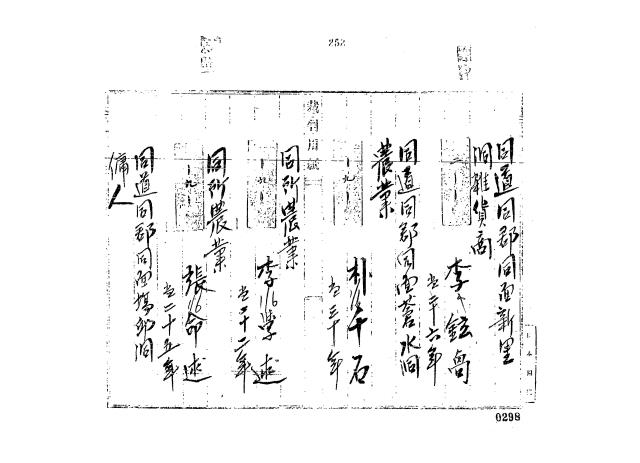 252
裁判用紙
同道同郡同面新里
洞雜貨商
李鉉
當二十六年
同道同郡同面蒼水洞
農業
朴千石
當三十年
同所農業
李學述
當二十二年
同所農業
張命述
當二十五年
同道同郡同面塢邱洞
傭人
0298